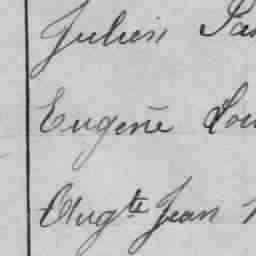 Julien
Eugène
Augte Jean